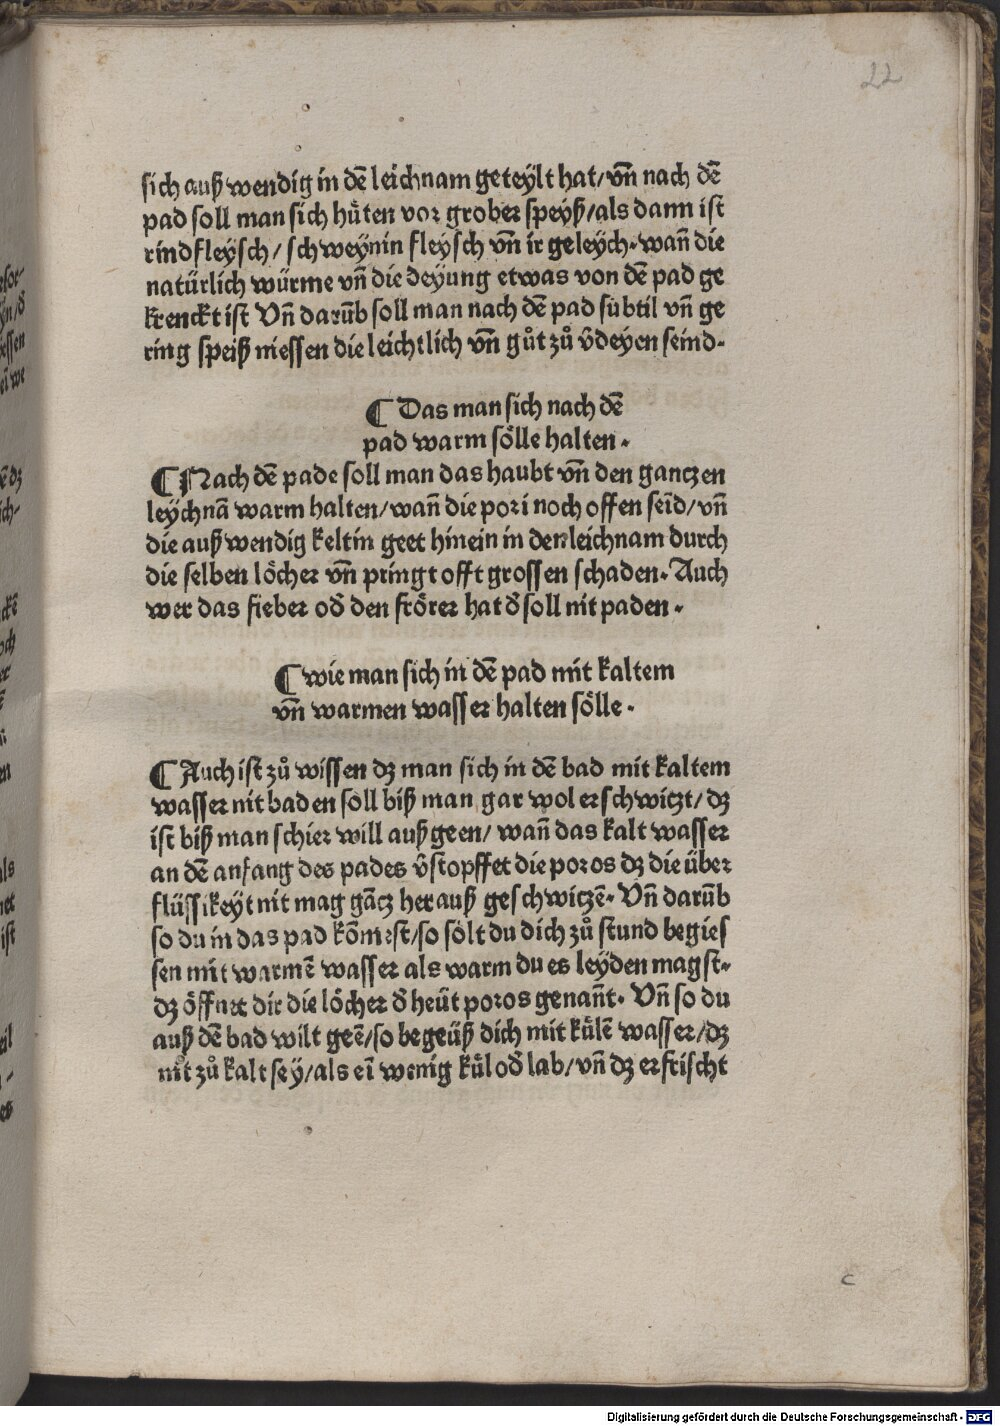 22
sich außwendig in dē leichnam geteylt hat/ vn̄ nach dē
pad soll man sich hu̇ten vor grober speyß/als dann ist
rindfleysch/ schweynin fleysch vn̄ ir geleych. wan̄ die
natürlich würme vn̄ die deyung etwas von dē pad ge
krenckt ist Vn̄ darūb soll man nach dē pad subtil vn̄ ge
ring speiß niessen die leichtlich vn̄ gůt zů v̄deyen seind.
¶ Das man sich nach dē
pad warm sölle halten.
¶ Nach dē pade soll man das haubt vn̄ den gantzen
leychnā warm halten/wan̄ die pori noch offen seīd/vn̄
die außwendig keltin geet hinein in den leichnam durch
die selben löcher vn̄ pringt offt grossen schaden. Auch
wer das fieber od̄ den frörer hat d̄ soll nit paden.
¶ wie man sich in dē pad mit kaltem
vn̄ warmen wasser halten sölle.
¶ Auch ist zů wissen dz man sich in dē bad mit kaltem
wasser nit baden soll biß man gar wol erschwitzt/dz
ist biß man schier will außgeen/ wan̄ das kalt wasser
an dē anfang des pades v̄stopffet die poros dz die über
flüssikeyt nit mag gātz herauß geschwitzē. Vn̄ darūb
so du in das pad kōmest/so sölt du dich zů stund begies
sen mit warmē wasser als warm du es leyden magst.
dz öffnet dir die löcher d̄ heüt poros genan̄t. Vn̄ so du
auß dē bad wilt geē/so begeüß dich mit külē wasser/dz
nit zů kalt sey/als eī wenig kül od̄ lab/vn̄ dz erfrischt
c
Digitalisierung gefördert durch die Deutsche Forschungsgemeinschaft - DFG